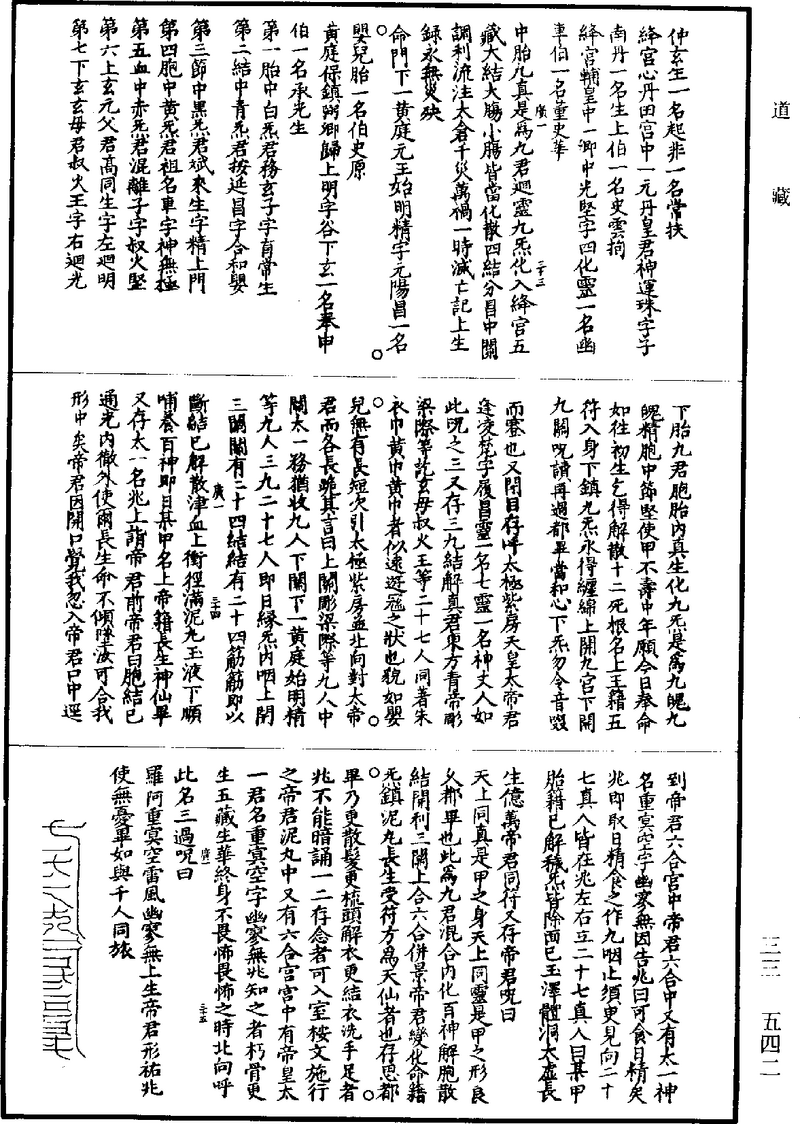 道藏
仲玄生一名起非一名常扶
絳宮心丹田宮中一元丹皇君神運珠字子
南丹一名生上伯一名史雲拘
絳宮輔皇中一卿中光堅字四化靈一名幽
車伯一名董史華
廣一
三十三
中胎九真是爲九君迴靈九炁化入絳宮五
藏大結大腸小腸皆當化散四結分目中關
調利流注太倉千災萬禍一時滅亡記上生
録永無災殃
命門下一黃庭元王始明精字元陽昌一名
嬰兒胎一名伯史原
黃庭保鎮弼卿歸上明字谷下玄一名奉申
伯一名承光生
第一胎中白炁君務玄子字育常生
第二結中青炁君按延昌字合和嬰
第三節中黑炁君斌來生字精上門
第四胞中黃炁君祖名車字神無極
第五血中赤炁君混離子字叔火堅
第六上玄元父君高同生字左迴明
第七下玄玄母君叔火王字右迴光
下胎九君胞胎內真生化九炁是爲九魄九
魄精胞中節堅使甲不壽中年願今日奉命
如往初生乞得解散十二死根名上玉籍五
符入身下鎮九炁永得纏綿上開九宮下開
九關呪讀再過都畢當和心下炁勿令音啜
而蹇也又閉目存呼太極紫房天皇太帝君
逢凌梵字履昌靈一名七靈一名神丈人如
此呪之三又存三九結解真君東方青帝彫
梁際等訖玄母叔火王等二十七人同著朱
衣巾黃巾黃巾者似遠遊冠之狀也貌如嬰
兒無有長短次引太極紫房並北向對太帝
君而各長跪其言曰上關彫梁際等九人中
關太一務猶收九人下關下一黃庭始明精
等九人三九二十七人即日緣炁內咽上開
三關關有二十四結結有二十四筋筋即以
廣一
三十四
斷結已解散津血上衝徑滿泥丸玉液下順
哺養百神即日某甲名上帝籍長生神仙畢
又存太一名兆上詣帝君前帝君曰胞結已
通光內徹外使爾長生命不傾墜汝可合我
形中矣帝君因開口覺我忽入帝君口中逕
到帝君六合宮中帝君六合中又有太一神
名重冥空字幽寥無因告兆曰可食日精矣
兆即取日精食之作九咽止須臾見向二十
七真人皆在兆左右立二十七真人曰某甲
胎籍已解穢炁皆除面已玉澤體洞太虛長
生億萬帝君同符又存帝君呪曰
天上同真是甲之身天上同靈是甲之形良
久都畢也此爲九君混合內化百神解胞散
結開利三關上合六合併景帝君變化命籍
炁鎮泥丸長生受符方爲天仙者也存思都
畢乃更散髮更梳頭解衣更結衣洗手足者
兆不能暗誦一二存念者可入室桉文施行
之帝君泥丸中又有六合宮宮中有帝皇太
一君名重冥空字幽寥無兆知之者朽骨更
生五藏生華終身不畏怖畏怖之時北向呼
廣一
三十五
此名三過呪曰
羅阿重冥空雷風幽寥無上生帝君形祐兆
使無憂畢如與千人同旅
三三 五四二